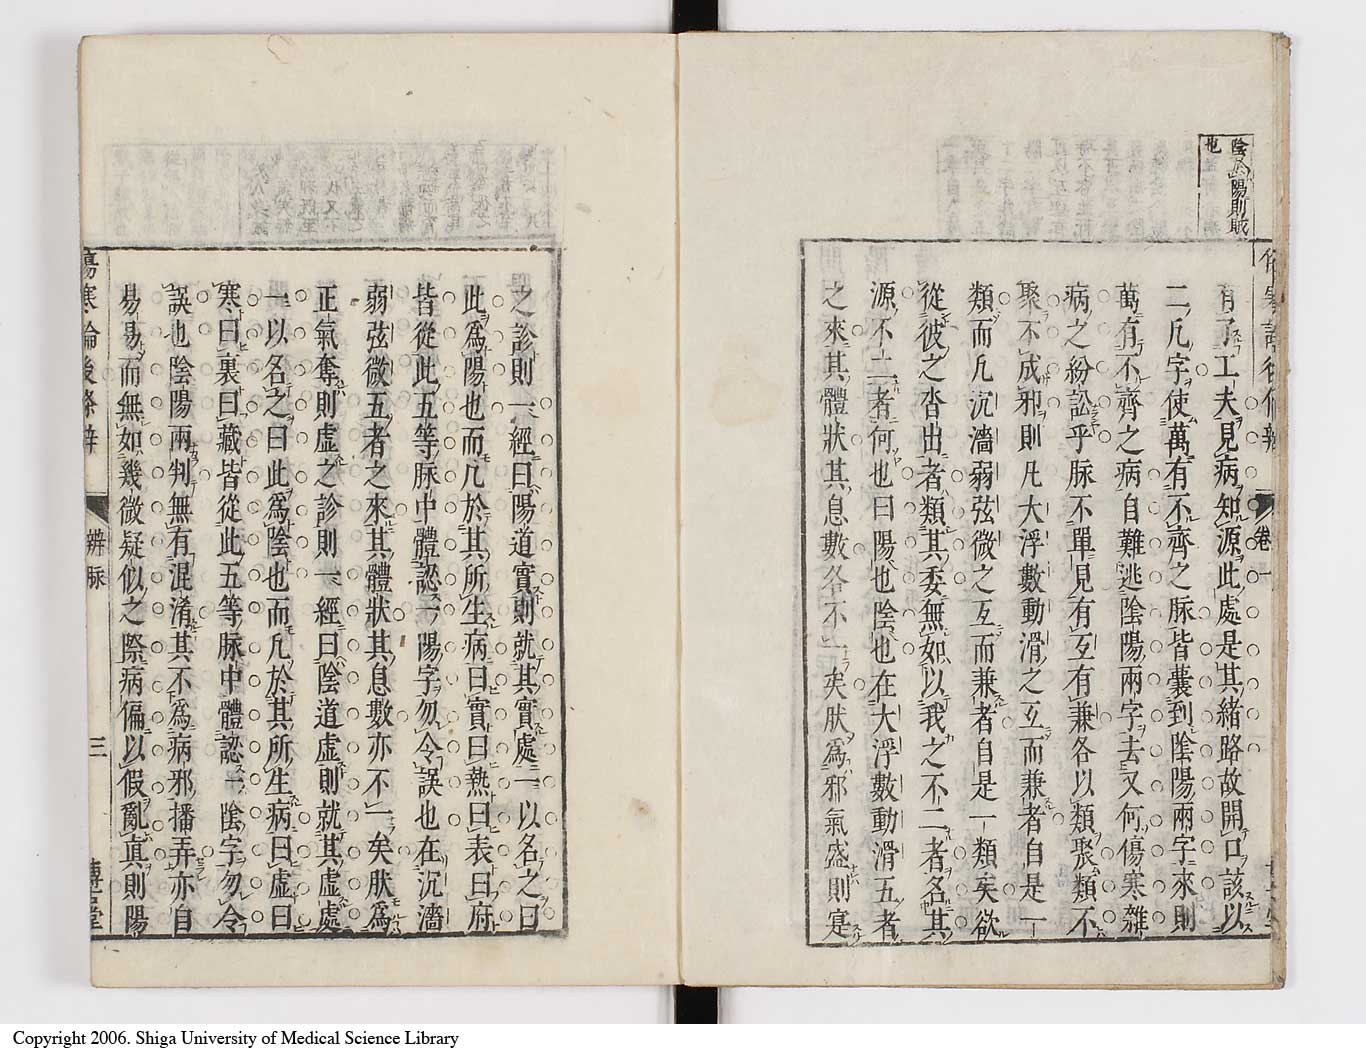 陰於陽則賊
也
有了工夫見病知源此處是其緒路故開口該以
二凡字使萬有不齊之脉皆囊到陰陽兩字來則
萬有不齊之病自難逃陰陽兩字去又何傷寒雜
病之紛訟乎脉不單見有互有兼各以類聚類不
聚不成邪則凡大浮數動滑之互而兼者自是一
類而凡沉濇弱弦微之互而兼者自是一類矣欲
從彼之沓出者類其委無如以我之不二者名其
源不二者何也曰陽也陰也在大浮數動滑五者
之來其體狀其息數各不一矣肰為邪氣盛則寔
卷一
之診則一經曰陽道實則就其實處一以名之曰
此為陽也而凡於其所生病曰實曰熱曰表曰府
皆從此五等脉中體認一陽字勿令誤也在沉濇
弱弦微五者之來其體狀其息數亦不一矣肰為
正氣奪則虛之診則一經曰陰道虛則就其虛處
一以名之曰此為陰也而凡於其所生病曰虛曰
寒曰裏曰藏皆從此五等脉中體認一陰字勿令
誤也陰陽兩判無有混淆其不為病邪播弄亦自
易易而無如幾微疑似之際病偏以假亂真則陽
傷寒論後條辨
辨脉
三
Copyright 2006. Shiga University of Medical Science Library